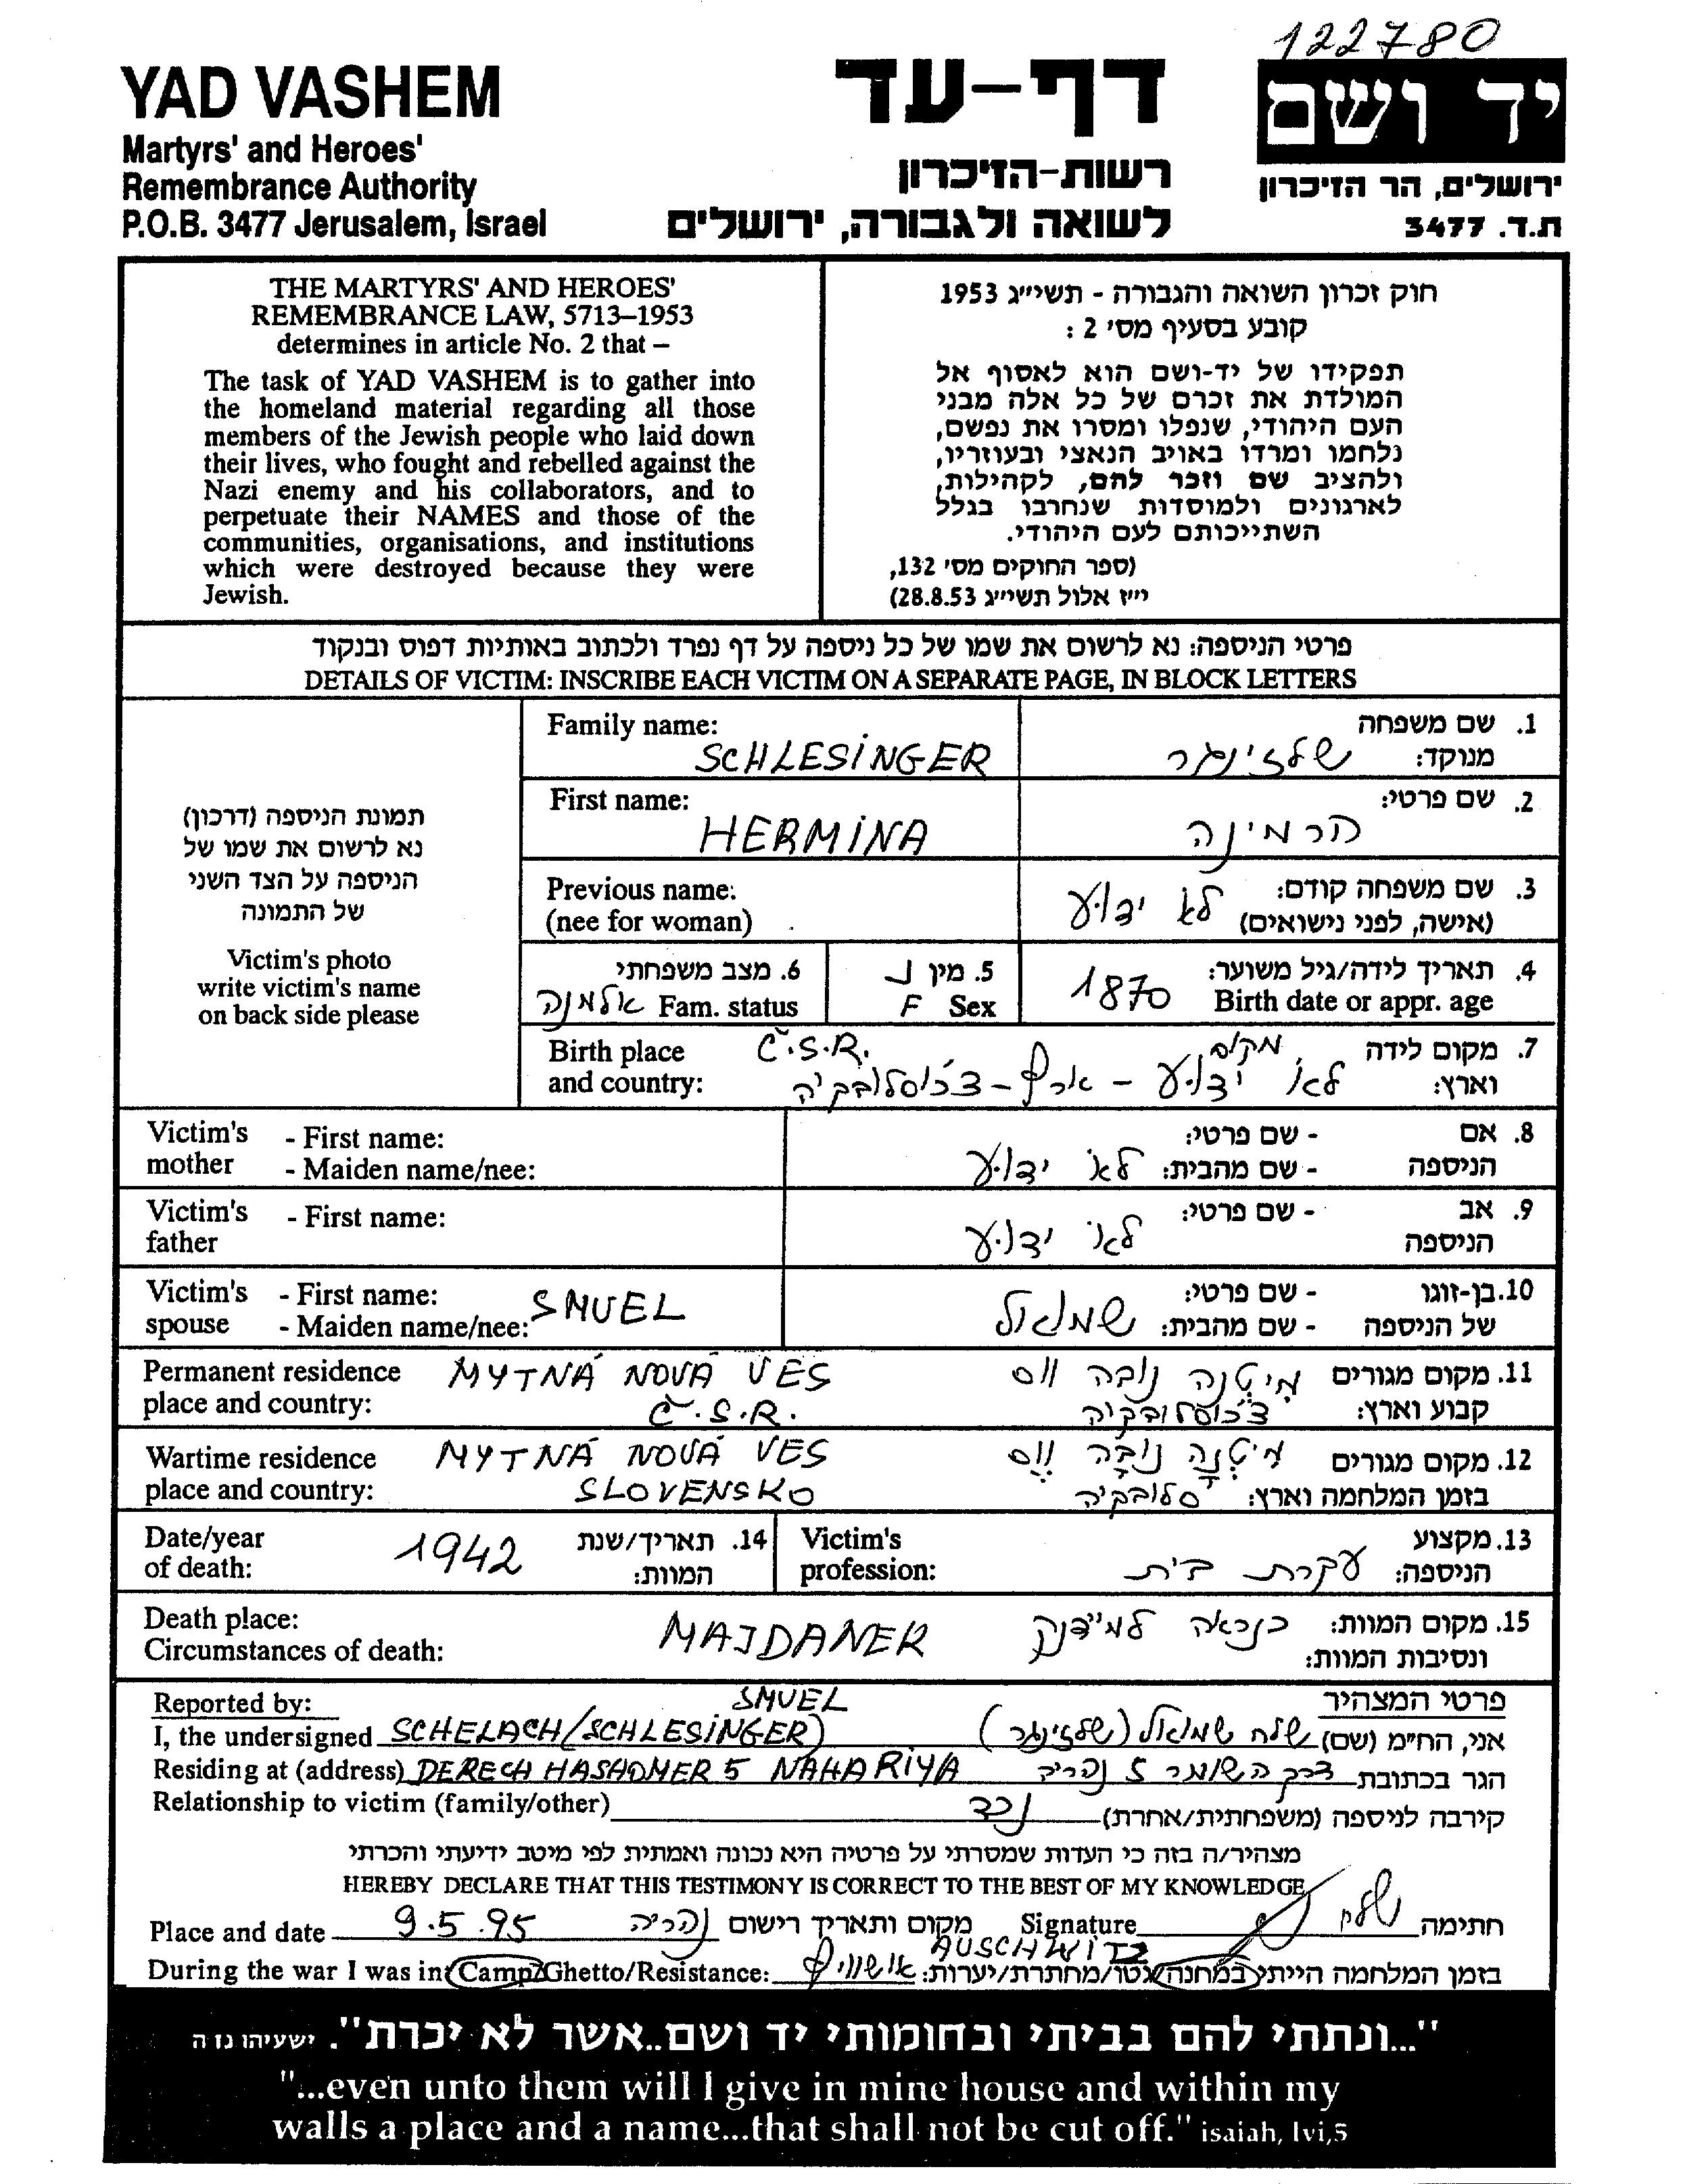 122780
YAD VASHEM
Martyrs' and Heroes'
Remembrance Authority
P.O.B. 3477 Jerusalem, Israel
דף-עד
רשות-הזיכרון
לשואה ולגבורה, ירושלים
יד ושם
ירושלים, הר הזיכרון
ת.ד. 3477
THE MARTYRS' AND HEROES'
REMEMBRANCE LAW, 5713–1953
determines in article No. 2 that –
The task of YAD VASHEM is to gather into
the homeland material regarding all those
members of the Jewish people who laid down
their lives, who fought and rebelled against the
Nazi enemy and his collaborators, and to
perpetuate their NAMES and those of the
communities, organisations, and institutions
which were destroyed because they were
Jewish.
חוק זכרון השואה והגבורה - תשי״ג 1953
קובע בסעיף מס׳ 2 :
תפקידו של יד-ושם הוא לאסוף אל
המולדת את זכרם של כל אלה מבני
העם היהודי, שנפלו ומסרו את נפשם,
נלחמו ומרדו באויב הנאצי ובעוזריו,
ולהציב שם וזכר להם, לקהילות,
לארגונים ולמוסדות שנחרבו בגלל
השתייכותם לעם היהודי.
(ספר החוקים מס׳ 132,
י״ז אלול תשי״ג 28.8.53)
פרטי הניספה: נא לרשום את שמו של כל ניספה על דף נפרד ולכתוב באותיות דפוס ובנקוד
DETAILS OF VICTIM: INSCRIBE EACH VICTIM ON A SEPARATE PAGE, IN BLOCK LETTERS
תמונת הניספה (דרכון)
נא לרשום את שמו של
הניספה על הצד השני
של התמונה
Victim's photo
write victim's name
on back side please
Family name:
SCHLESINGER
1. שם משפחה
מנוקד: שלזינגר
First name:
HERMINA
2. שם פרטי:
הרמינה
Previous name:
(nee for woman)
3. שם משפחה קודם: לא ידוע
(אישה, לפני נישואים)
6. מצב משפחתי
אלמנה Fam. status
5. מין נ
F Sex
4. תאריך לידה/גיל משוער:
1870 Birth date or appr. age
Birth place
and country:
Č.S.R.
7. מקום לידה מקום
וארץ: לא ידוע - ארץ - צ'כוסלובקיה
Victim's mother - First name:
- Maiden name/nee:
8. אם הניספה - שם פרטי:
- שם מהבית: לא ידוע
Victim's father - First name:
9. אב הניספה - שם פרטי:
לא ידוע
Victim's spouse - First name:
- Maiden name/nee: SMUEL
10. בן-זוגו של הניספה - שם פרטי:
- שם מהבית: שמואל
Permanent residence MYTNÁ NOVÁ VES
place and country: Č.S.R.
11. מקום מגורים מיטנה נובה ווס
קבוע וארץ: צ'כוסלובקיה
Wartime residence MYTNÁ NOVÁ VES
place and country: SLOVENSKO
12. מקום מגורים מיטנה נובה ווס
בזמן המלחמה וארץ: סלובקיה
Date/year
of death: 1942
14. תאריך/שנת
המוות:
Victim's
profession:
13. מקצוע
הניספה: עקרת בית
Death place:
Circumstances of death: MAJDANEK
15. מקום המוות: כנראה למיידנק
ונסיבות המוות:
Reported by: SMUEL
פרטי המצהיר
I, the undersigned SCHELACH/(SCHLESINGER)
אני, הח״מ (שם) שלח שמואל (שלזינגר)
Residing at (address) DERECH HASHOMER 5 NAHARIYA
הגר בכתובת דרך השומר 5 נהריה
Relationship to victim (family/other)
קירבה לניספה (משפחתית/אחרת) נכד
מצהיר/ה בזה כי העדות שמסרתי על פרטיה היא נכונה ואמתית לפי מיטב ידיעתי והכרתי
HEREBY DECLARE THAT THIS TESTIMONY IS CORRECT TO THE BEST OF MY KNOWLEDGE
Place and date 9.5.95 מקום ותאריך רישום נהריה
Signature חתימה שלח
AUSCHWITZ
During the war I was in Camp/Ghetto/Resistance:
בזמן המלחמה הייתי במחנה/גטו/מחתרת/יערות: אושוויץ
"...ונתתי להם בביתי ובחומותי יד ושם..אשר לא יכרת". ישעיהו נו ה
"...even unto them will I give in mine house and within my
walls a place and a name...that shall not be cut off." isaiah, lvi,5